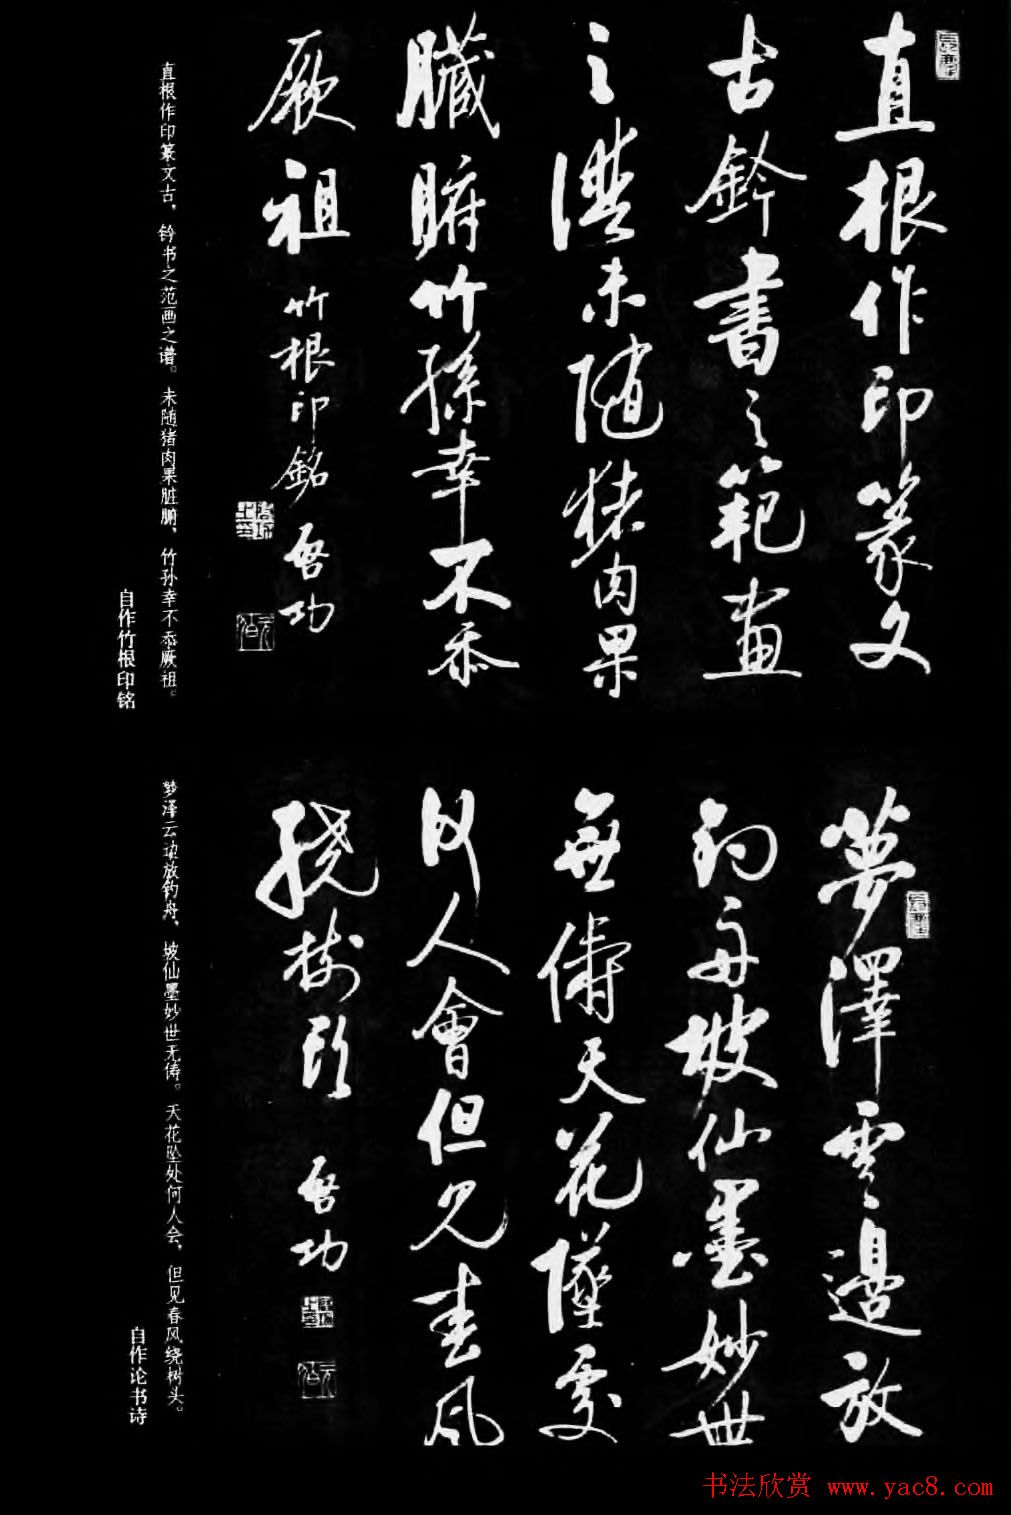 直根作印篆文
古鈐書之範畫
之譜未随猪肉果
臟腑竹孫幸不忝
厥祖
竹根印銘 启功
直根作印篆文古，钤书之范画之谱。未随猪肉果脏腑，竹孙幸不忝厥祖。
自作竹根印铭
夢澤雲邊放
釣舟坡仙墨妙世
無儔天花墜處
何人會但見春風
繞樹頭
启功
梦泽云边放钓舟，坡仙墨妙世无俦。天花坠处何人会，但见春风绕树头。
自作论书诗
书法欣赏 www.yac8.com